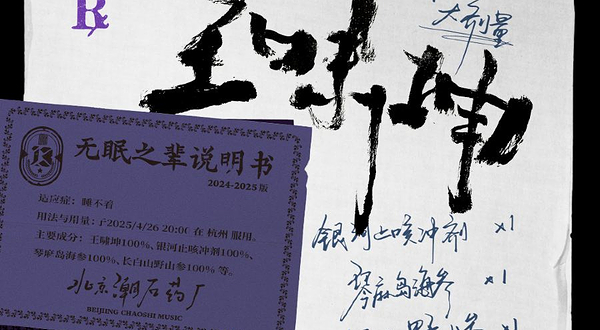 R
大剂量
王啸坤
无眠之辈说明书
2024-2025版
适应症：睡不着
用法与用量：于2025/4/26 20:00 在 杭州 服用。
主要成分：王啸坤100%、银河止咳冲剂100%、
琴麻岛海参100%、长白山野山参100% 等。
北京潮石药厂
BEIJING CHAOSHI MUSIC
银河止咳冲剂 x1
琴麻岛海参 x1